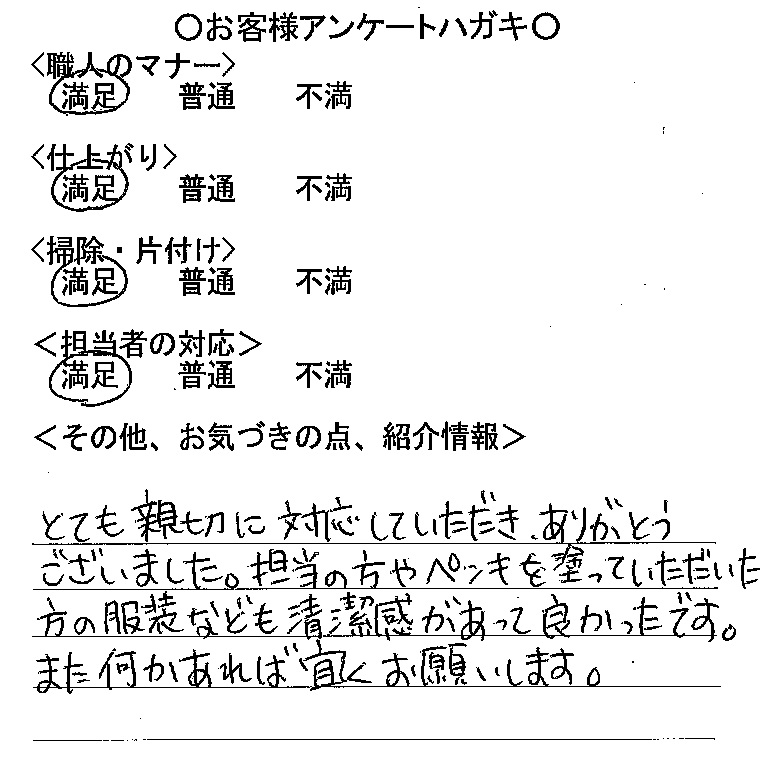 〇お客様アンケートハガキ〇
<職人のマナー>
満足 普通 不満
<仕上がり>
満足 普通 不満
<掃除・片付け>
満足 普通 不満
<担当者の対応>
満足 普通 不満
<その他、お気づきの点、紹介情報>
とても親切に対応していただき、ありがとう
ございました。担当の方やペンキを塗っていただいた
方の服装なども清潔感があって良かったです。
また何かあれば宜くお願いします。